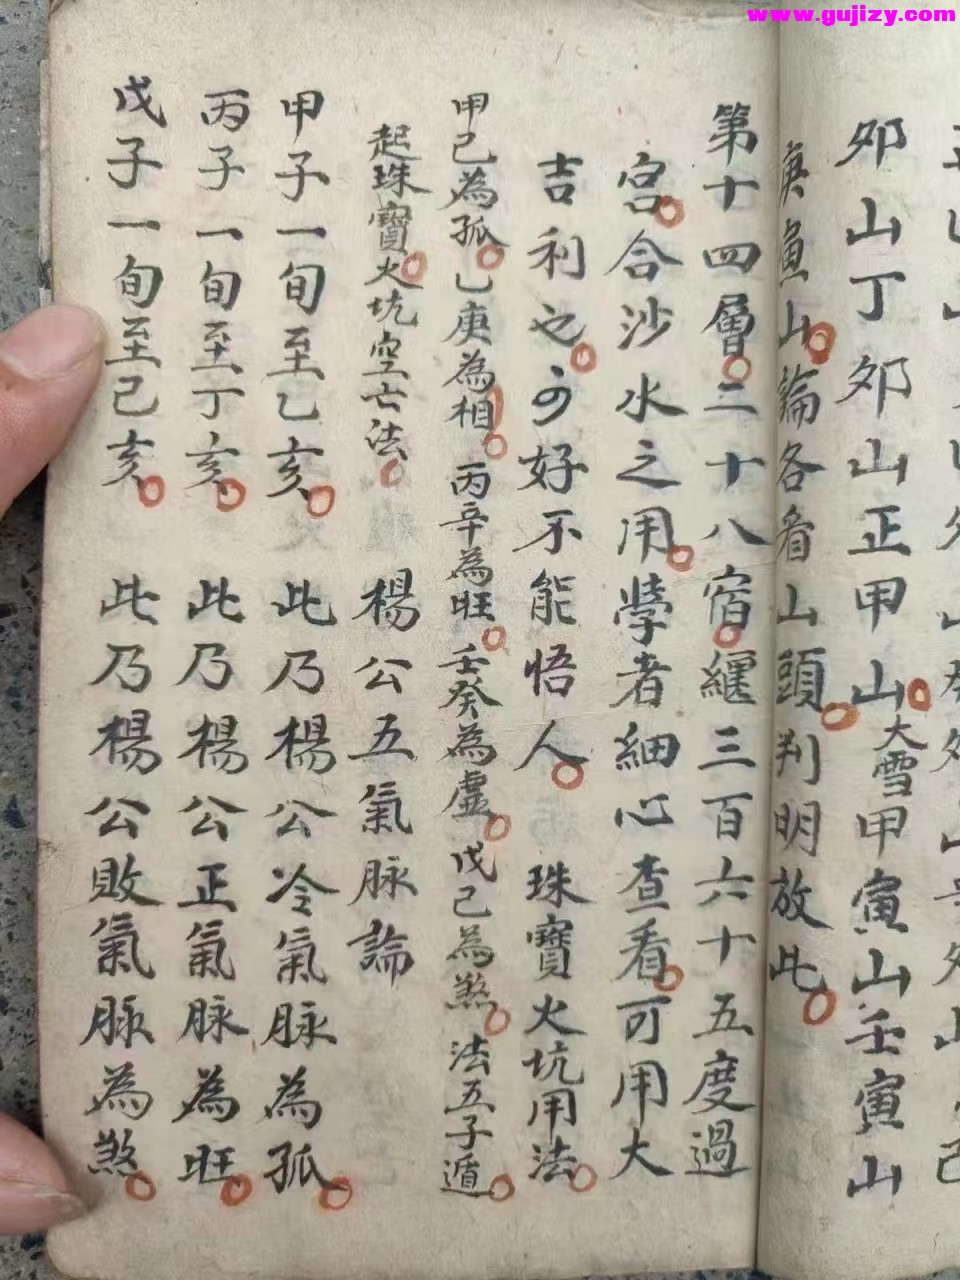 www.gujizy.com
夘山丁夘山正甲山大雪甲寅山壬寅山
庚寅山論各看山頭判明放此
第十四層二十八宿纏三百六十五度過
宮合沙水之用學者細心查看可用大
吉利之可好不能悟人 珠寶火坑用法
甲己為孤乙庚為相丙辛為旺壬癸為虛戊己為煞法五子遁
起珠寶火坑空亡法 楊公五氣脉論
甲子一旬至乙亥 此乃楊公冷氣脉為孤
丙子一旬至丁亥 此乃楊公正氣脉為旺
戊子一旬至己亥 此乃楊公敗氣脉為煞